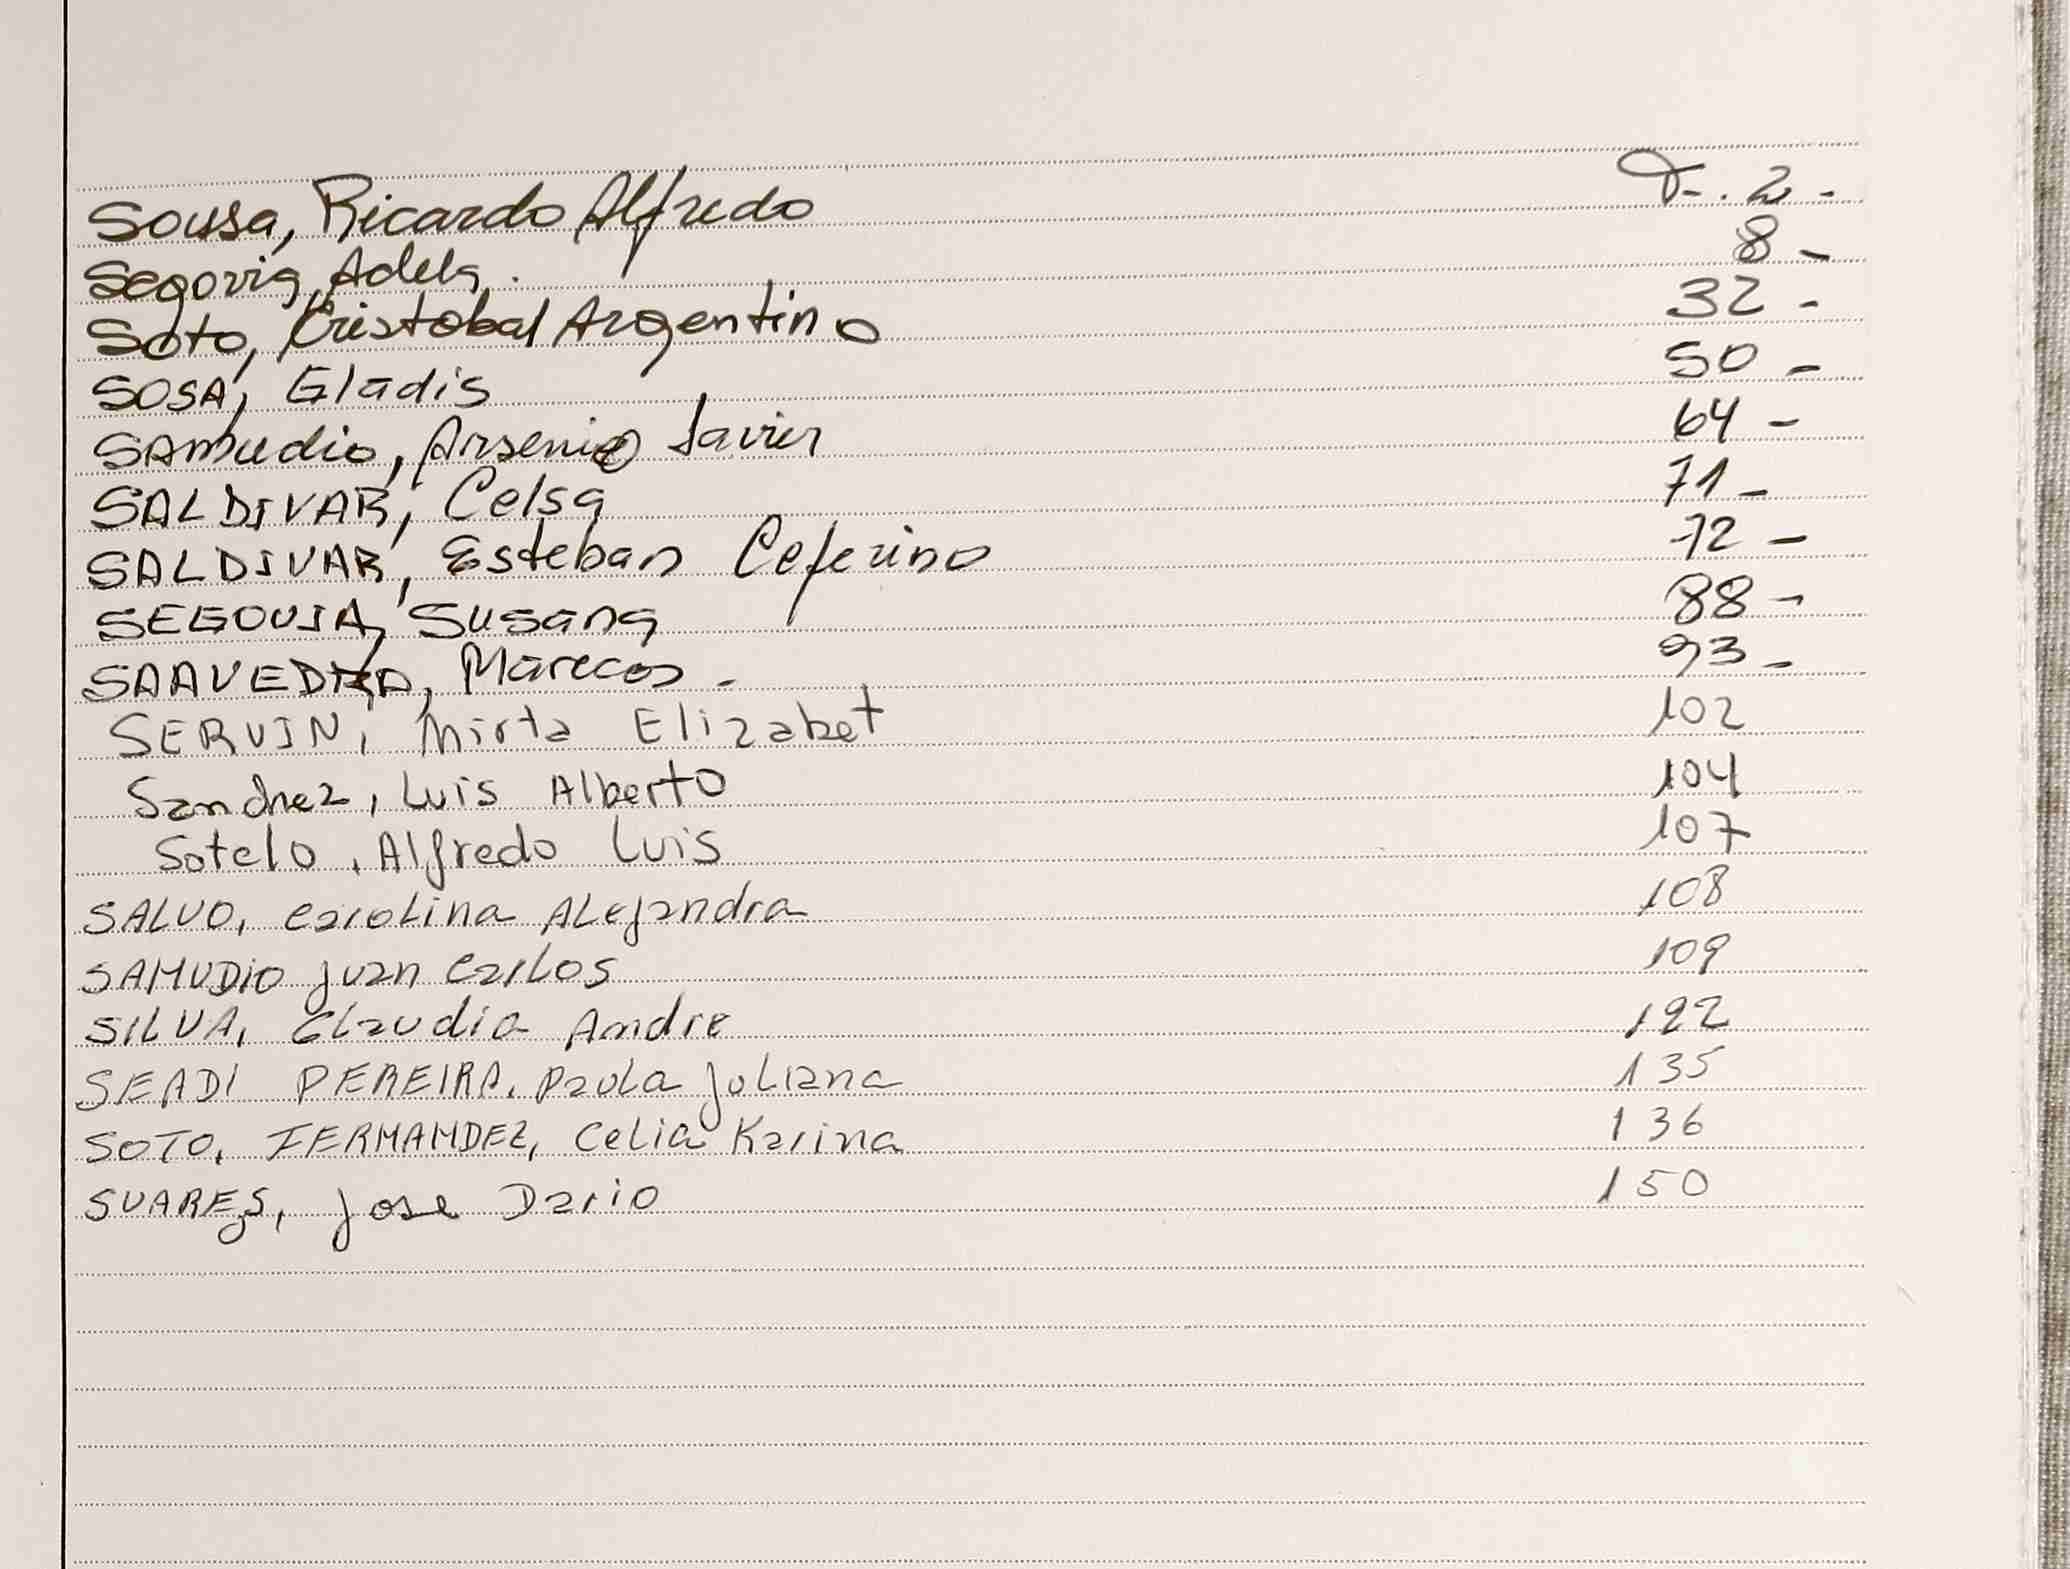 Sousa, Ricardo Alfredo F-. 2 -
Segovia, Adela. 8 -
Soto, Cristobal Argentino 32 -
SOSA, Gladis 50 -
SAmudio, Arsenio Javier 64 -
SALDIVAR, Celsa 71 -
SALDIVAR, Esteban Ceferino 72 -
SEGOVIA, Susana 88 -
SAAVEDRA, Marecos - 93 -
SERVIN, Mirta Elizabet 102
Sanchez, Luis Alberto 104
Sotelo, Alfredo Luis 107
SALVO, Carolina ALejandra 108
SAMUDIO Juan CarLos 109
SILVA, Claudia Andre 122
SEADI PEREIRA, Paola Juliana 135
SOTO, FERNANDEZ, Celia Karina 136
SUARES, Jose Dario 150